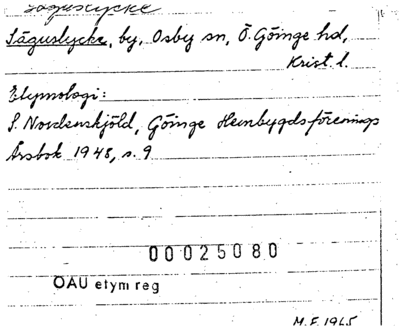 Säguslycke
Säguslycke, by, Osby sn, Ö. Göinge hd,
Krist. l.
Etymologi:
S. Nordenskjöld, Göinge Hembygdsförenings
Årsbok 1948, s. 9
00025080
OAU etym reg
M.F. 1965